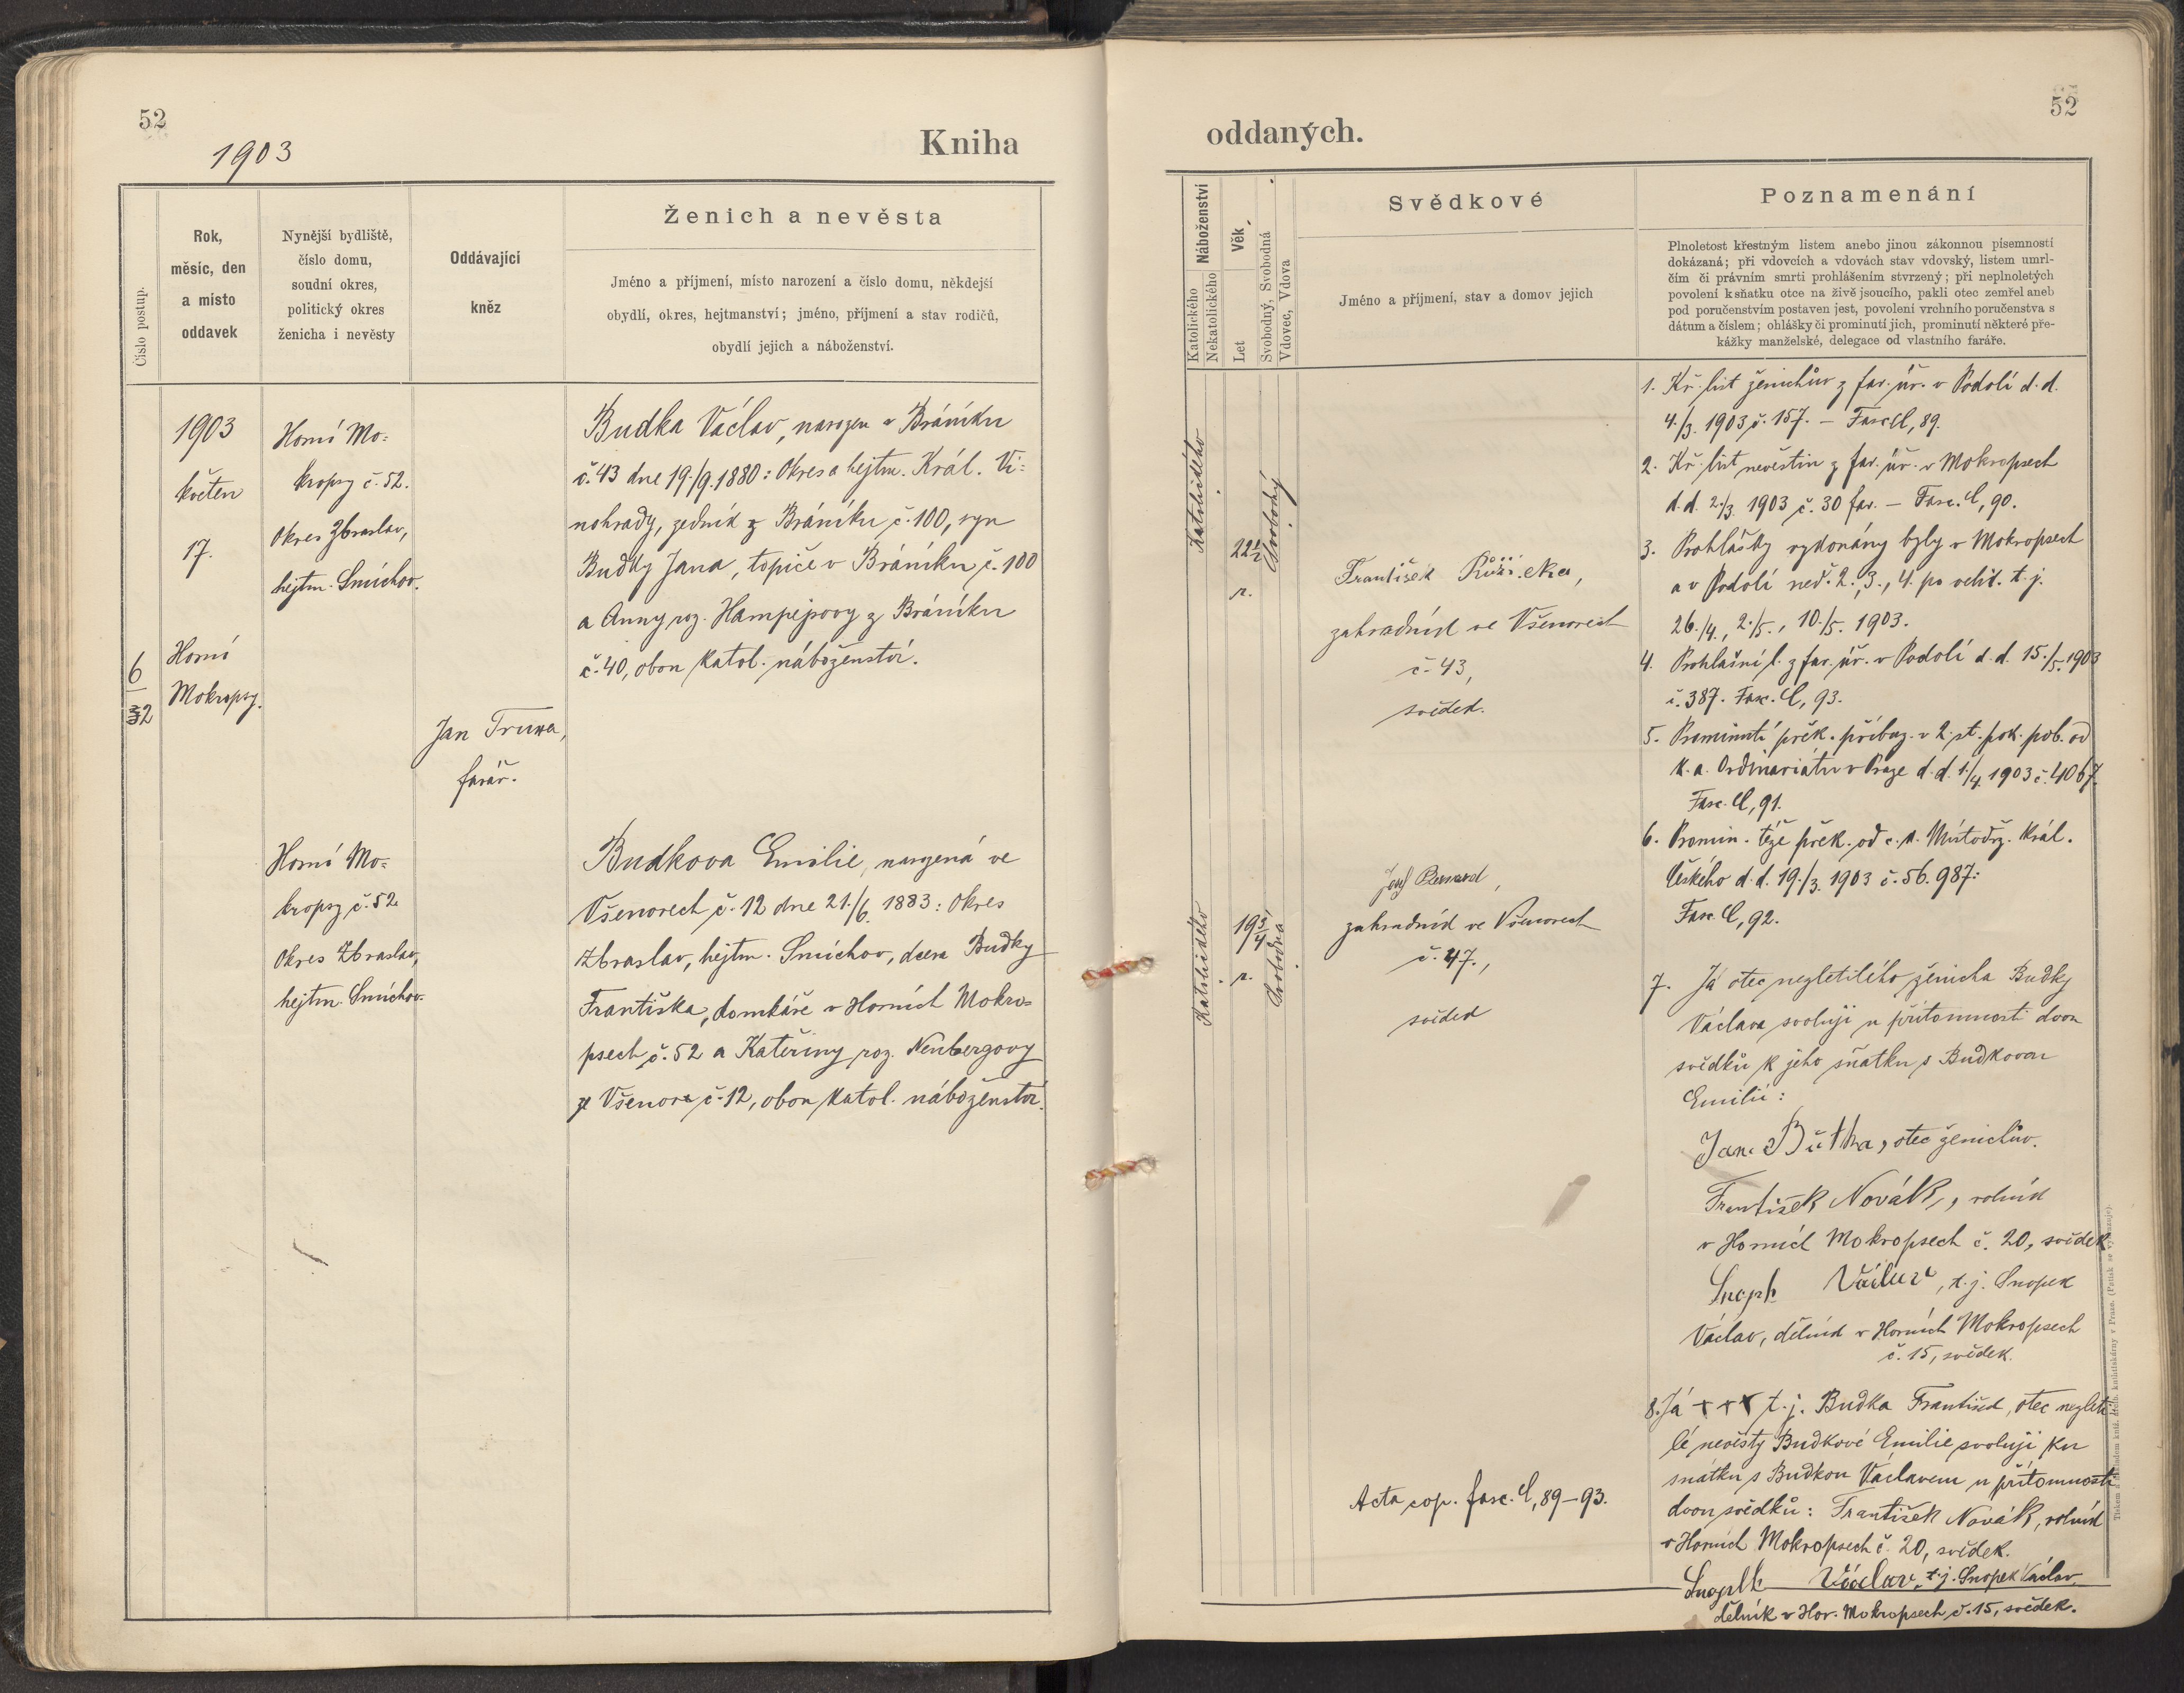 52
1903
Kniha
Číslo postup.
Rok,
měsíc, den
a místo
oddavek
Nynější bydliště,
číslo domu,
soudní okres,
politický okres
ženicha i nevěsty
Oddávající
kněz
Ženich a nevěsta
Jméno a příjmení, místo narození a číslo domu, někdejší
obydlí, okres, hejtmanství; jméno, příjmení a stav rodičů,
obydlí jejich a náboženství.
6
32
1903
květen
17.
Horní
Mokropsy.
Horní Mo-
kropsy č. 52.
Okres Zbraslav,
hejtm. Smíchov.
Jan Truxa,
farář.
Budka Václav, narozen v Bráníku
č. 43 dne 19./9. 1880: Okres a hejtm. Král. Vi-
nohrady, zedník z Bráníku č. 100, syn
Budky Jana, topiče v Bráníku č. 100
a Anny roz. Hampejsovy z Bráníku
č. 40, obou katol. náboženství.
Horní Mo-
kropsy č. 52
Okres Zbraslav,
hejtm. Smíchov.
Budkova Emilie, narozená ve
Všenorech č. 12 dne 21./6. 1883: Okres
Zbraslav, hejtm. Smíchov, dcera Budky
Františka, domkáře v Horních Mokro-
psech č. 52 a Kateřiny roz. Neubergovy
ze Všenor č. 12, obou katol. náboženství.
52
oddaných.
Náboženství
Katolického
Nekatolického
Věk
Let
Svobodný, Svobodná
Vdovec, Vdova
Svědkové
Jméno a příjmení, stav a domov jejich
Poznamenání
Plnoletost křestným listem anebo jinou zákonnou písemností
dokázaná; při vdovcích a vdovách stav vdovský, listem umrl-
čím či právním smrti prohlášením stvrzený; při neplnoletých
povolení k sňatku otce na živě jsoucího, pakli otec zemřel aneb
pod poručenstvím postaven jest, povolení vrchního poručenstva s
dátum a číslem; ohlášky či prominutí jich, prominutí některé pře-
kážky manželské, delegace od vlastního faráře.
Katolického
22 1/2
r.
Svobodný
František Růžička,
zahradník ve Všenorech
č. 43,
svědek.
Katolického
19 3/4
r.
Svobodna
Josef Bernard,
zahradník ve Všenorech
č. 47.,
svědek
Acta cop. fasc. C, 89–93.
1. Kř. list ženichův z far. úř. v Podolí d. d.
4./3. 1903 č. 157. – Fasc C, 89.
2. Kř. list nevěstin z far. úř. v Mokropsech
d. d. 2./3. 1903 č. 30 far. – Fasc. C, 90.
3. Prohlášky vykonány byly v Mokropsech
a v Podolí ned. 2., 3., 4. po velik. t. j.
26./4., 2./5., 10./5. 1903.
4. Prohlášní l. z far. úř. v Podolí d. d. 15./5. 1903
č. 387. Fasc. C, 93.
5. Prominutí přek. příbuz. v 2. st. pok. pob. od
k. a. Ordinariátu v Praze d. d. 1./4. 1903 č. 4067.
Fasc. C, 91.
6. Promin. téže přek. od c. k. Místodrž. král.
Českého d. d. 19./3. 1903 č. 56.987:
Fasc. C, 92.
7. Já otec nezletilého ženicha Budky
Václava svoluji u přítomnosti dvou
svědků k jeho sňatku s Budkovou
Emilií:
Jan Butka, otec ženichův.
František Novák, rolník
v Horních Mokropsech č. 20, svědek
Václav, t. j. Snopek
Václav, dělník v Horních Mokropsech
č. 15, svědek.
8. Já + + + t. j. Budka František, otec nezleti-
lé nevěsty Budkové Emilie svoluji ku
sňatku s Budkou Václavem u přítomnosti
dvou svědků: František Novák, rolník
v Horních Mokropsech č. 20, svědek.
Václav, t. j. Snopek Václav
dělník v Hor. Mokropsech, č. 15, svědek.